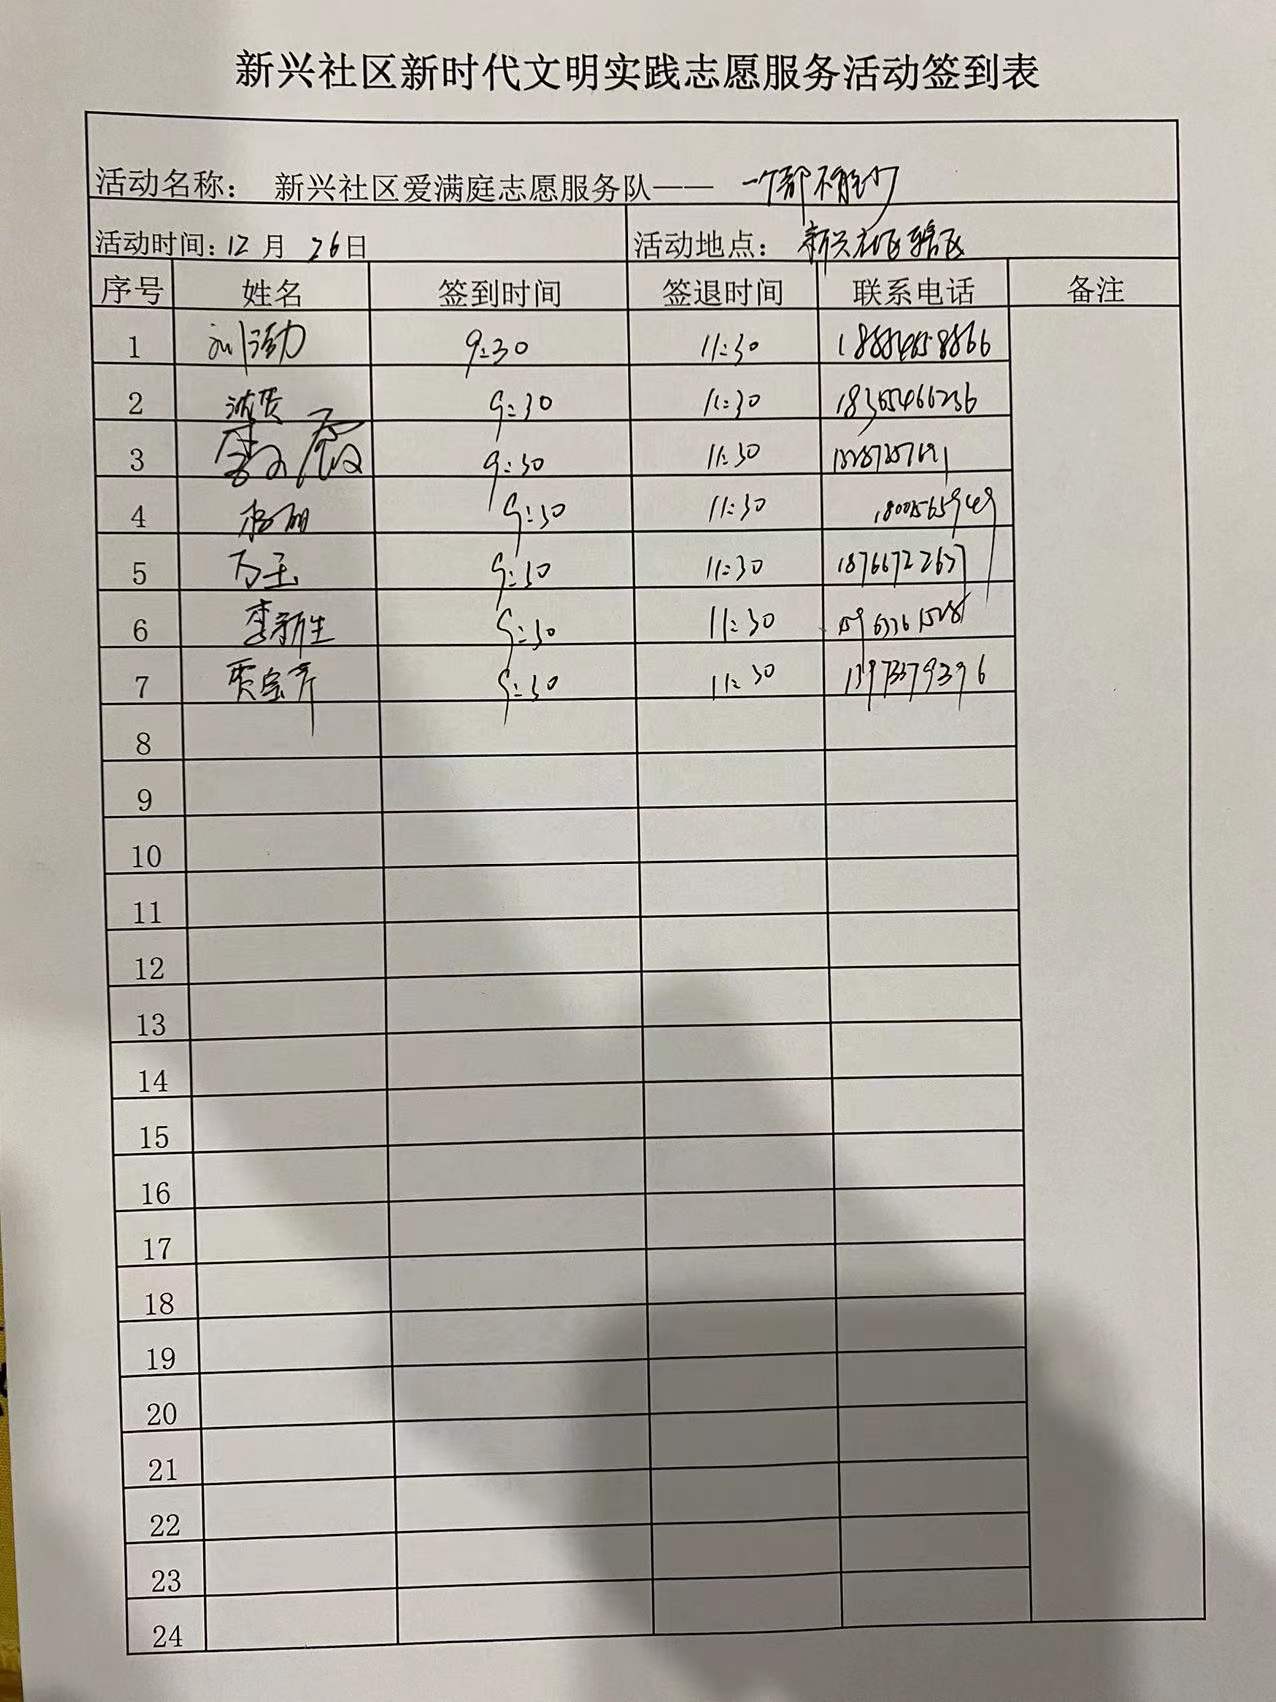 新兴社区新时代文明实践志愿服务活动签到表
活动名称： 新兴社区爱满庭志愿服务队—— 一个都不能少
活动时间：12月 26日 活动地点： 新兴社区辖区
序号 姓名 签到时间 签退时间 联系电话 备注
1 9:30 11:30
2 9:30 11:30 18365466236
3 9:30 11:30
4 杨丽 9:30 11:30 1800565949
5 万玉 9:30 11:30 18766722637
6 李新生 9:30 11:30
7 贾宝齐 9:30 11:30
8
9
10
11
12
13
14
15
16
17
18
19
20
21
22
23
24